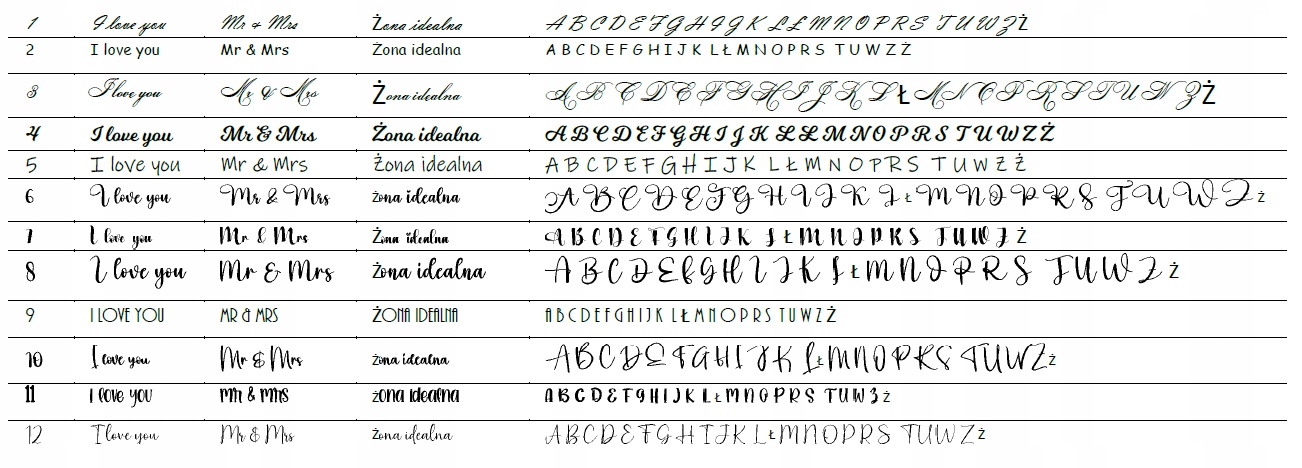 1 I love you Mr & Mrs Żona idealna A B C D E F G H I J K L Ł M N O P R S T U W Z Ż
2 I love you Mr & Mrs Żona idealna A B C D E F G H I J K L Ł M N O P R S T U W Z Ż
3 I love you Mr & Mrs Żona idealna A B C D E F G H I J K L Ł M N O P R S T U W Z Ż
4 I love you Mr & Mrs Żona idealna A B C D E F G H I J K L Ł M N O P R S T U W Z Ż
5 I love you Mr & Mrs Żona idealna A B C D E F G H I J K L Ł M N O P R S T U W Z Ż
6 I love you Mr & Mrs Żona idealna A B C D E F G H I J K L Ł M N O P R S T U W Z Ż
7 I love you Mr & Mrs Żona idealna A B C D E F G H I J K L Ł M N O P R S T U W Z Ż
8 I love you Mr & Mrs Żona idealna A B C D E F G H I J K L Ł M N O P R S T U W Z Ż
9 I LOVE YOU MR & MRS ŻONA IDEALNA A B C D E F G H I J K L Ł M N O P R S T U W Z Ż
10 I love you Mr & Mrs żona idealna A B C D E F G H I J K L Ł M N O P R S T U W Z Ż
11 I love you Mr & Mrs żona idealna A B C D E F G H I J K L Ł M N O P R S T U W Z Ż
12 I love you Mr & Mrs Żona idealna A B C D E F G H I J K L Ł M N O P R S T U W Z Ż